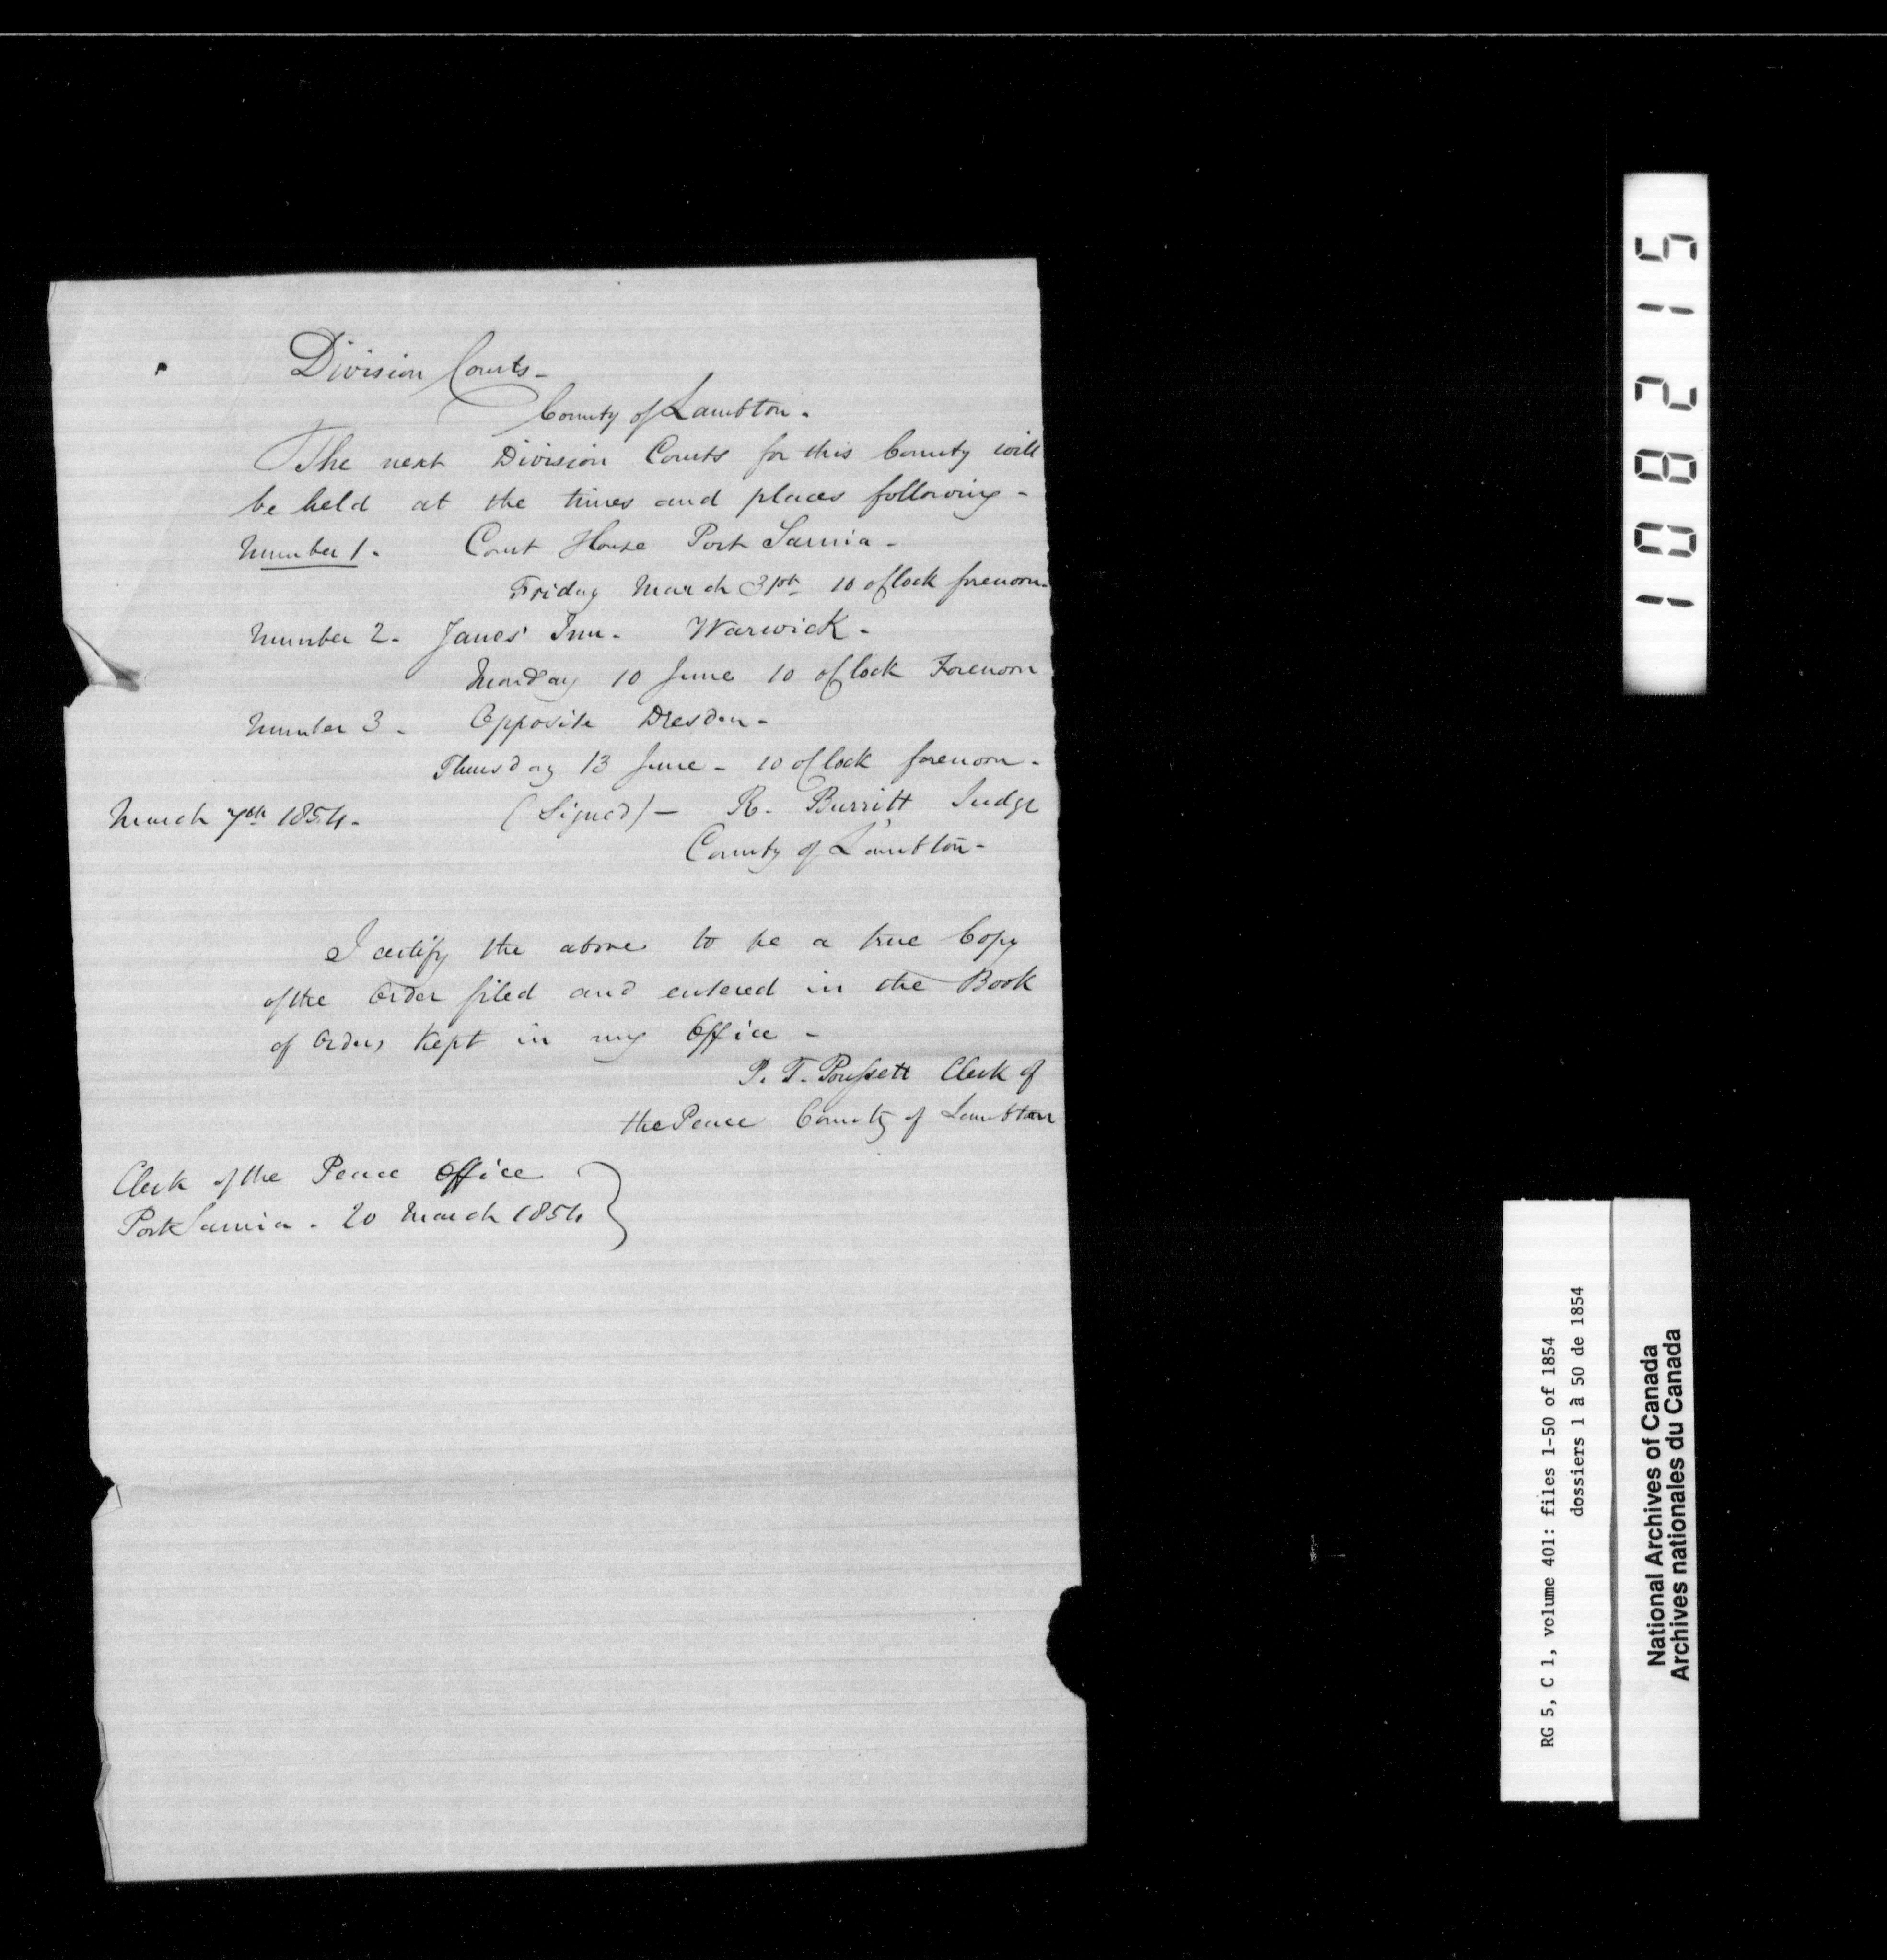 Division Courts -
County of Lambton -
The next Division Courts for this County will
be held at the times and places following -
Number 1 - Court House Port Sarnia -
Friday March 31st 10 oClock forenoon -
Number 2 - Janes' Inn - Warwick -
Monday 10 June 10 oClock Forenoon
Number 3 - Opposite Dresden -
Thursday 13 June - 10 oClock forenoon -
March 7th 1854 - (Signed) - R. Burritt Judge
County of Lambton -
I certify the above to be a true Copy
of the Order filed and entered in the Book
of Orders Kept in my Office -
P. T. Poussett Clerk of
the Peace County of Lambton
Clerk of the Peace Office
Port Sarnia - 20 March 1854
108215
RG 5, C 1, volume 401: files 1-50 of 1854
dossiers 1 à 50 de 1854
National Archives of Canada
Archives nationales du Canada